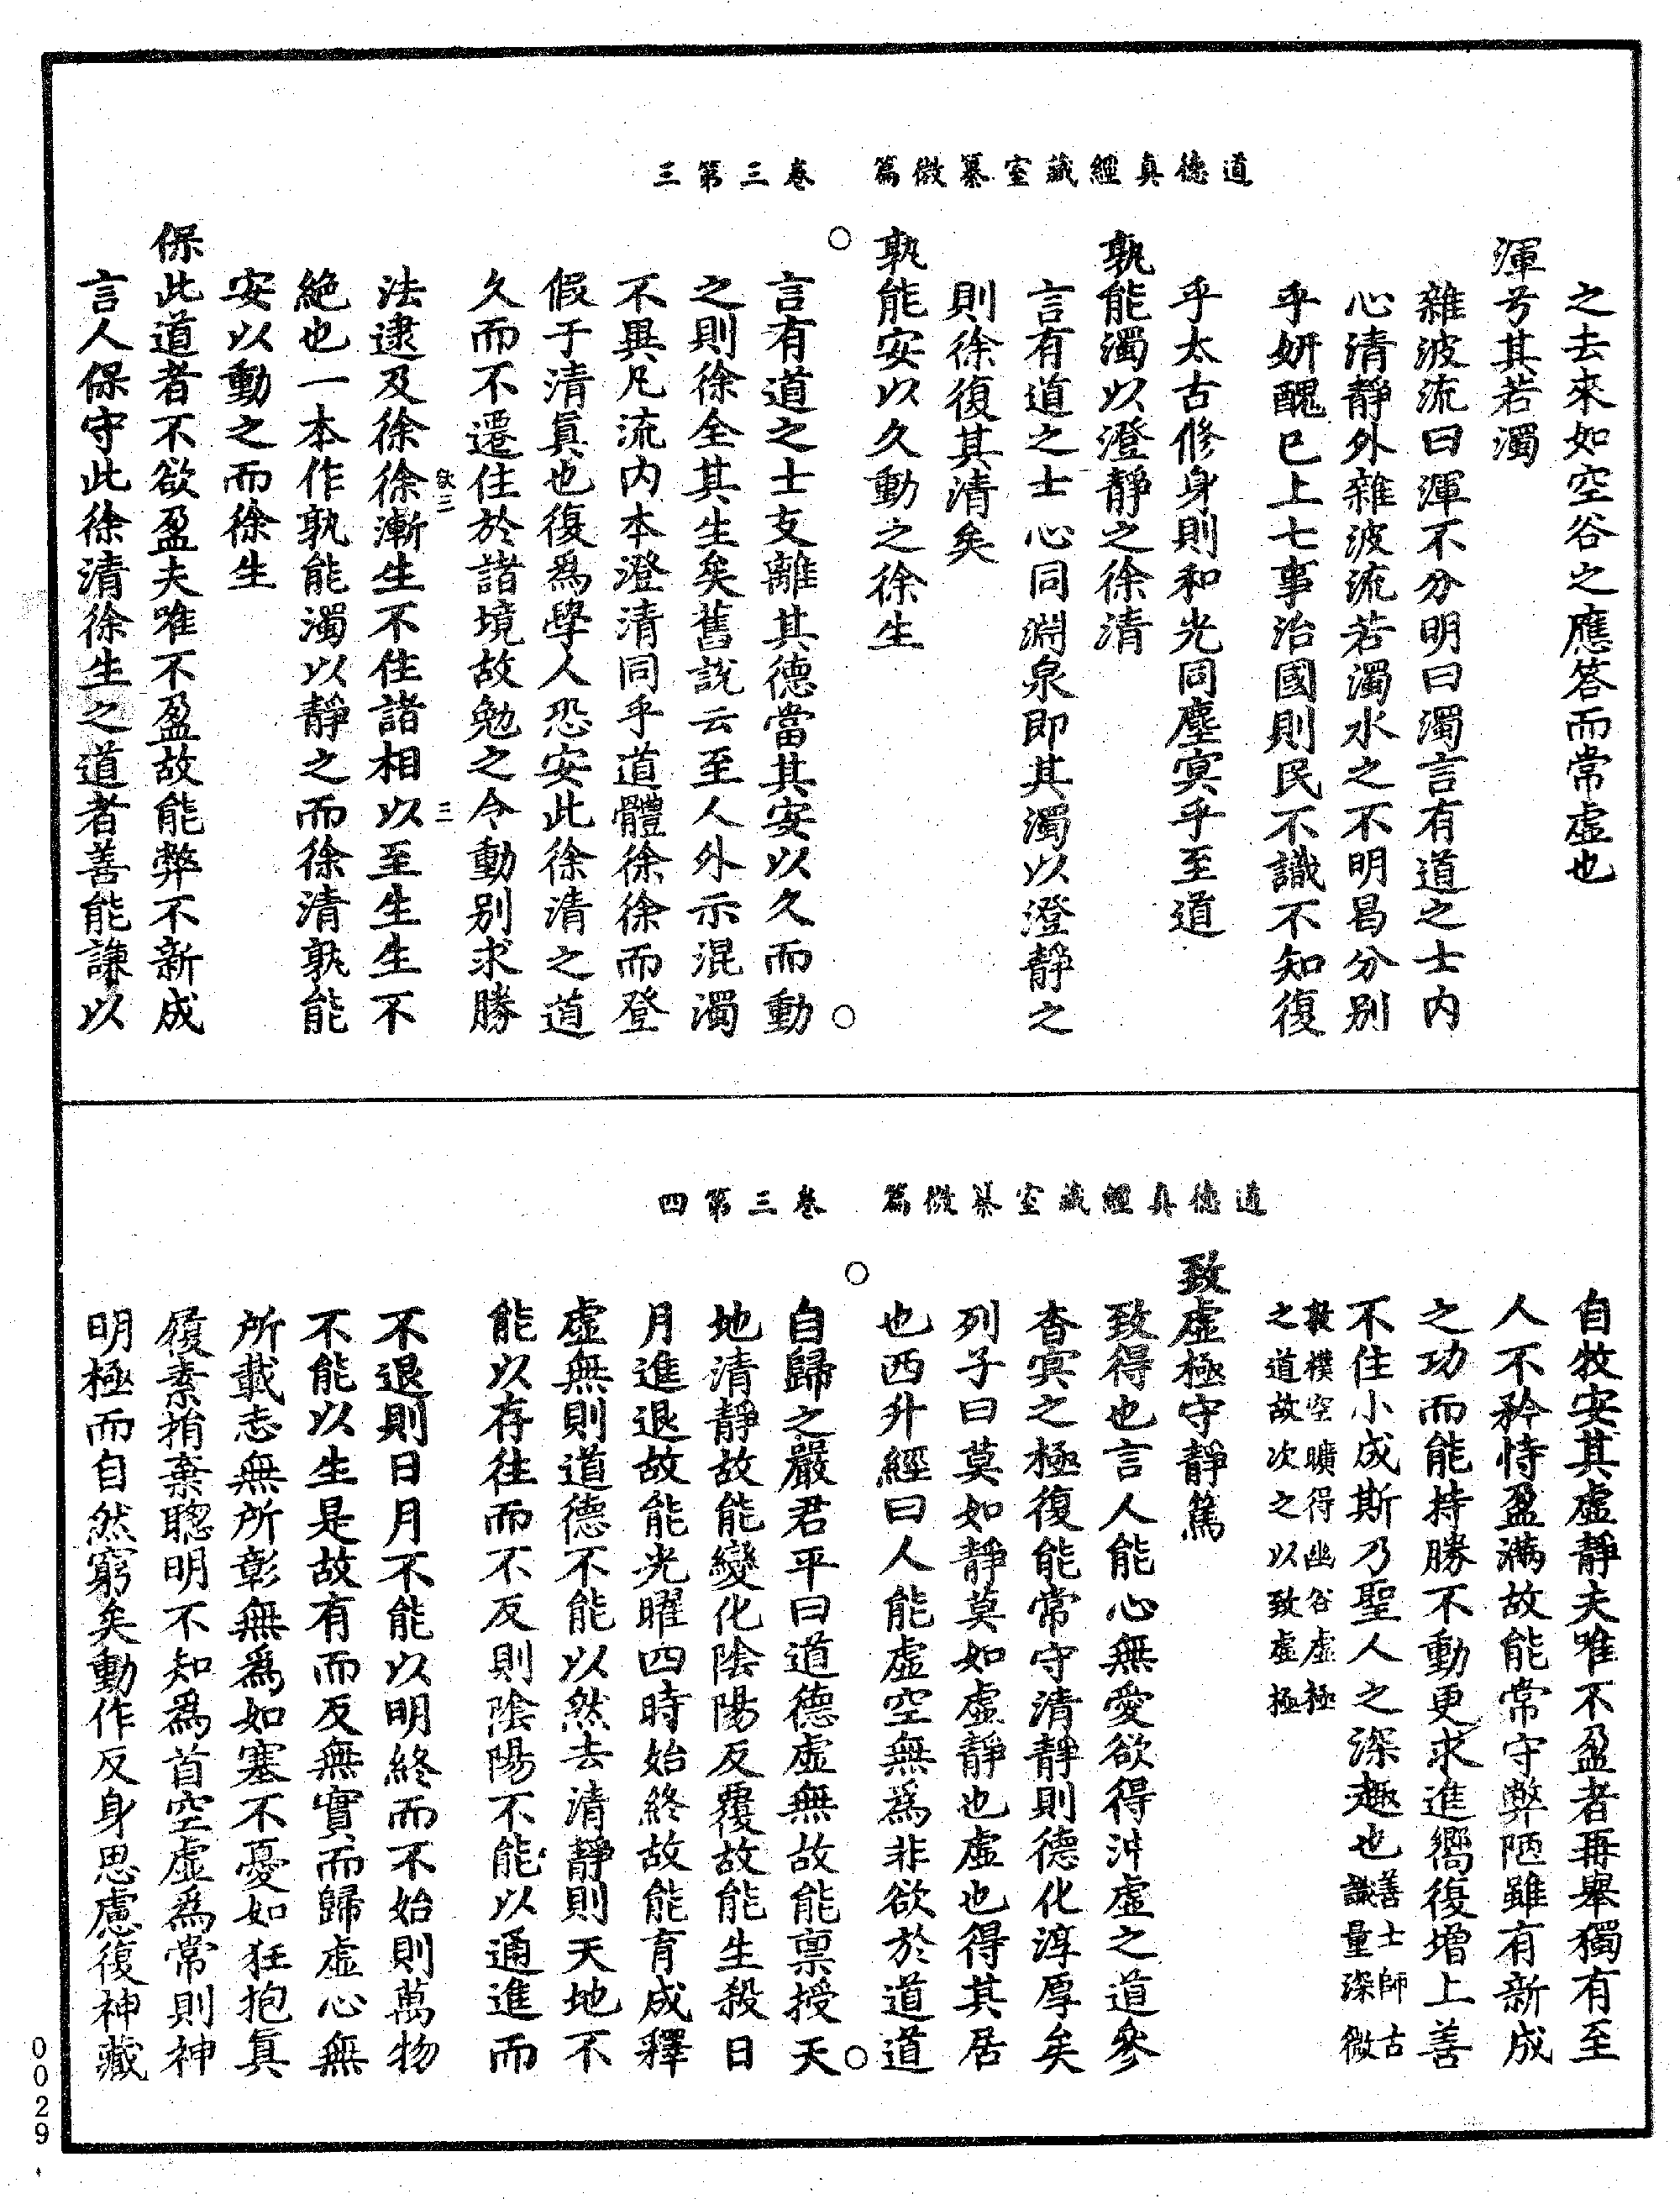 道德真經藏室纂微篇　卷三第三
之去來如空谷之應答而常虛也
渾兮其若濁
雜波流曰渾不分明曰濁言有道之士內
心清靜外雜波流若濁水之不明昌分別
乎妍醜巳上七事治國則民不識不知復
乎太古修身則和光同塵冥乎至道
孰能濁以澄靜之徐清
言有道之士心同淵泉即其濁以澄靜之
則徐復其清矣
孰能安以久動之徐生
言有道之士支離其德當其安以久而動
之則徐全其生矣舊說云至人外示混濁
不異凡流內本澄清同乎道體徐徐而登
假于清真也復為學人恐安此徐清之道
久而不遷住於諸境故勉之令動別求勝
欲三　三
法逮及徐徐漸生不住諸相以至生生不
絕也一本作孰能濁以靜之而徐清孰能
安以動之而徐生
保此道者不欲盈夫唯不盈故能弊不新成
言人保守此徐清徐生之道者善能謙以
道德真經藏室纂微篇　卷三第四
自牧安其虛靜夫唯不盈者再舉獨有至
人不矜恃盈滿故能常守弊陋雖有新成
之功而能持勝不動更求進嚮復增上善
不住小成斯乃聖人之深趣也善士師古
識量深微
敦樸空曠得幽谷虛極
之道故次之以致虛極
致虛極守靜篤
致得也言人能心無愛欲得沖虛之道參
杳冥之極復能常守清靜則德化淳厚矣
列子曰莫如靜莫如虛靜也虛也得其居
也西升經曰人能虛空無為非欲於道道
自歸之嚴君平曰道德虛無故能稟授天
地清靜故能變化陰陽反覆故能生殺日
月進退故能光曜四時始終故能育成釋
虛無則道德不能以然去清靜則天地不
能以存往而不反則陰陽不能以通進而
不退則日月不能以明終而不始則萬物
不能以生是故有而反無實而歸虛心無
所載志無所彰無為如塞不憂如狂抱真
履素捐棄聰明不知為首空虛為常則神
明極而自然窮矣動作反身思慮復神藏
0029